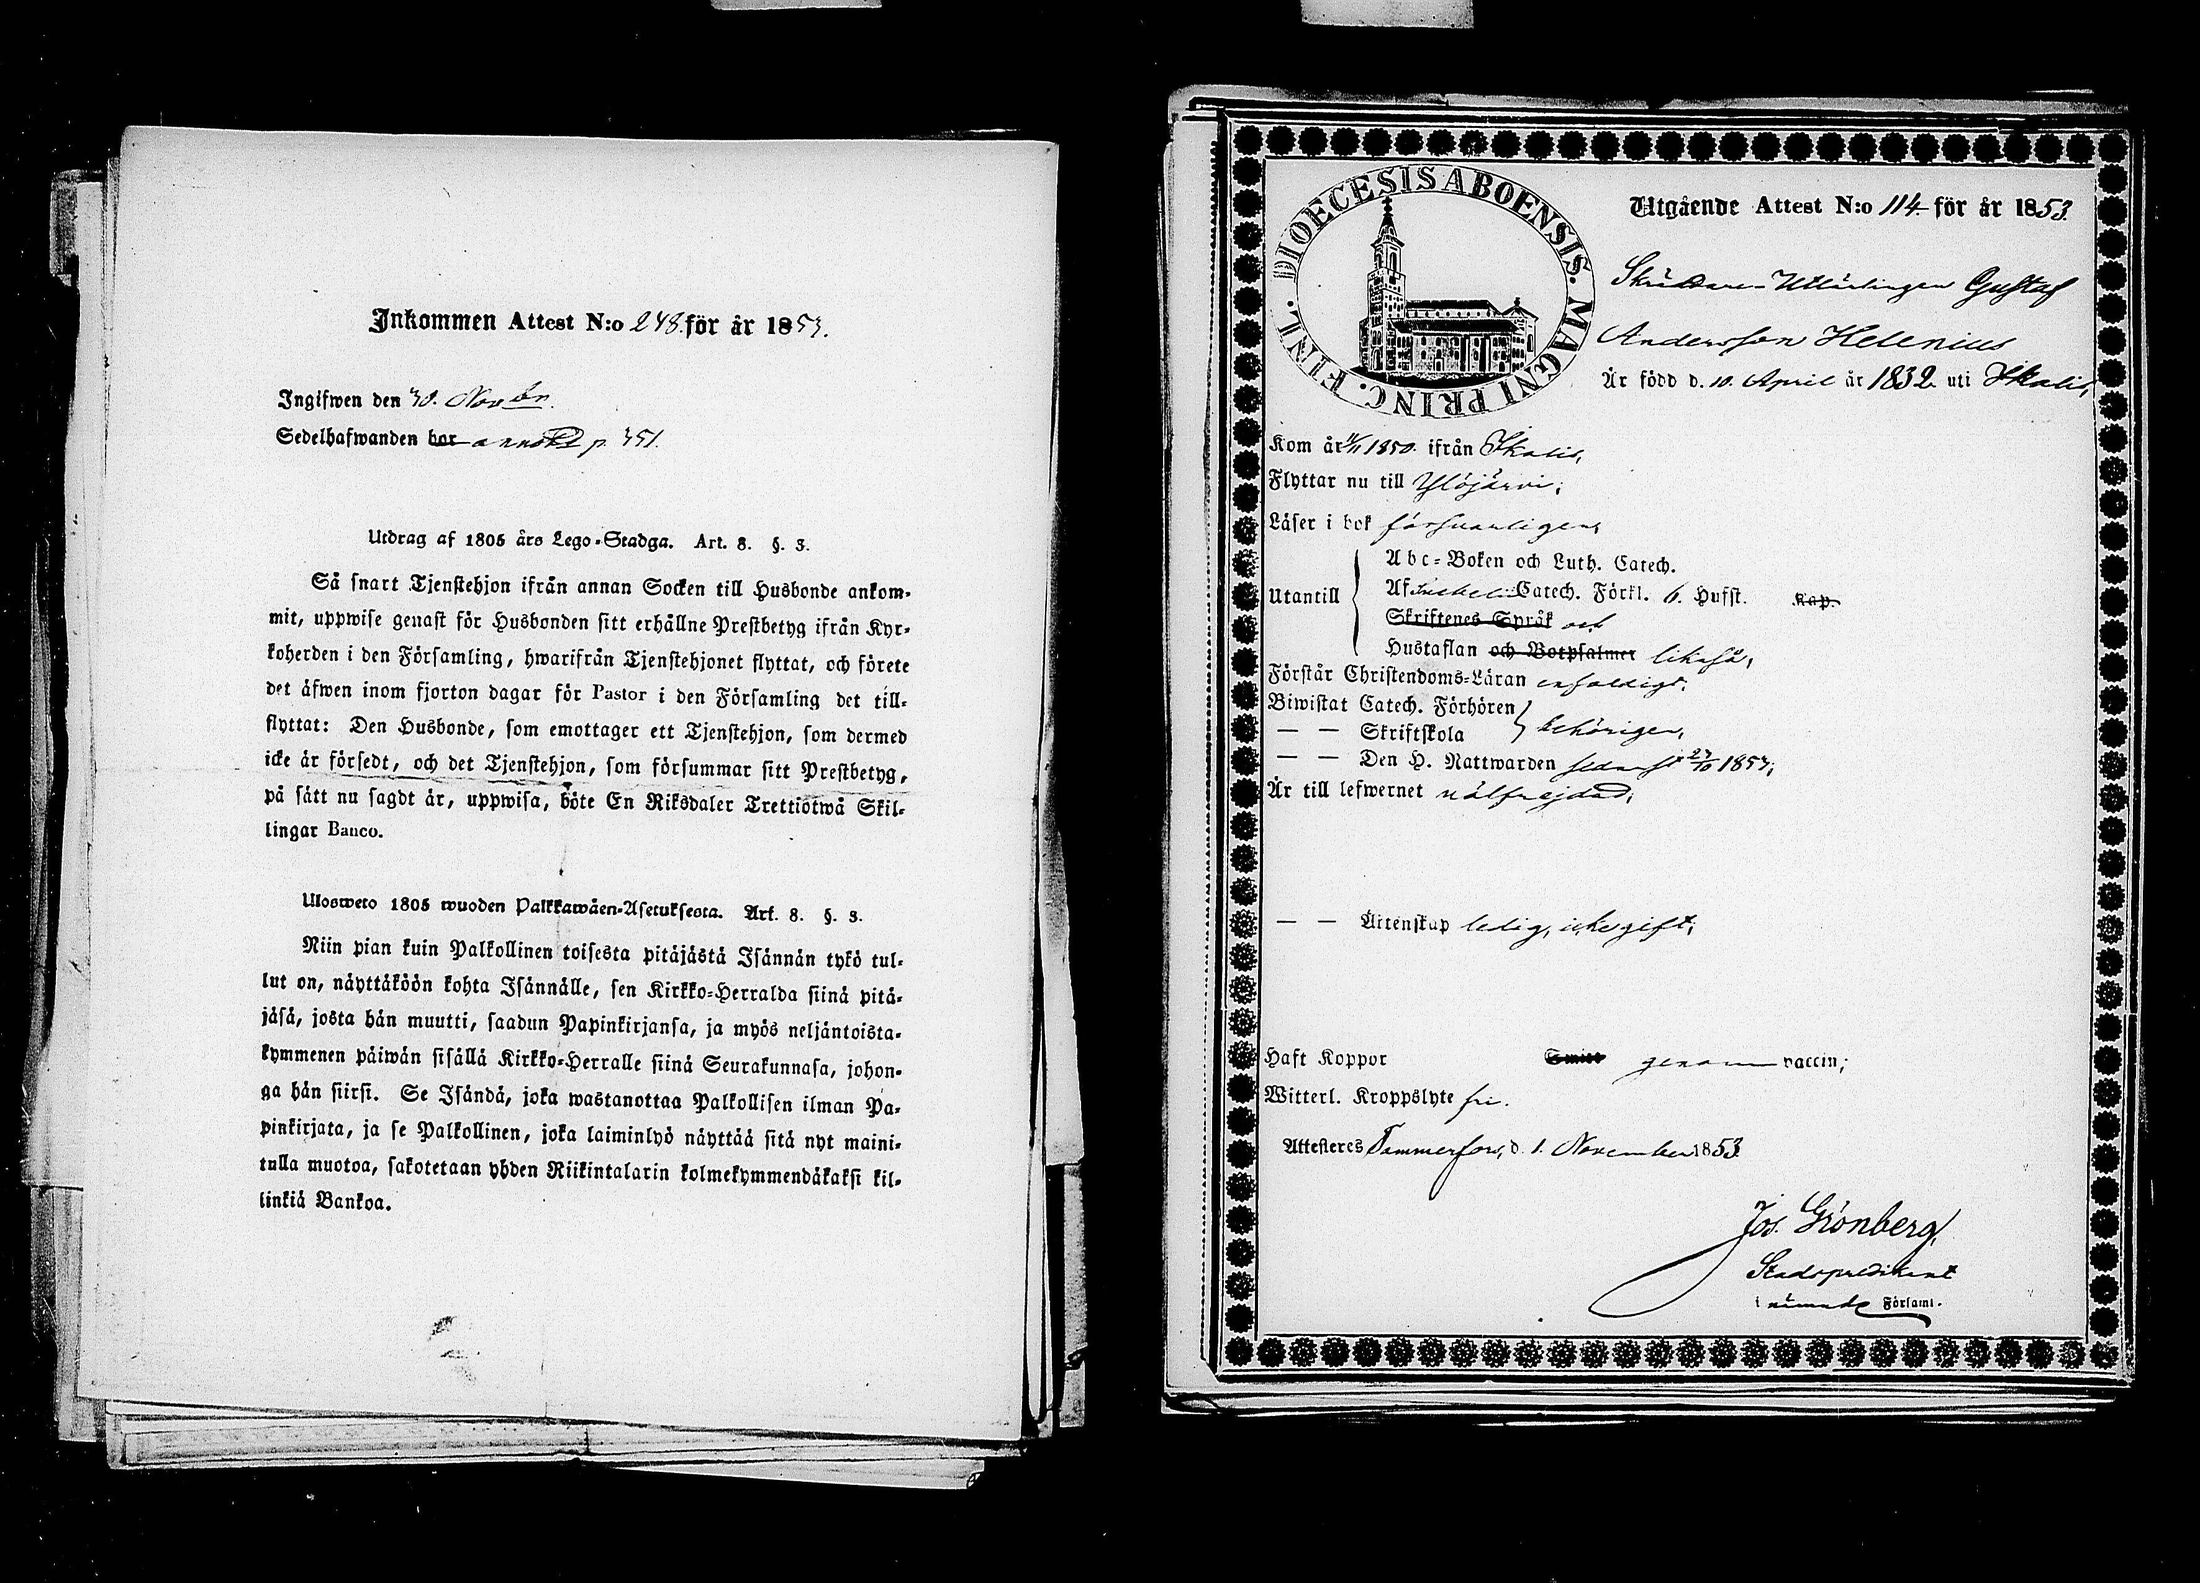 Inkommen Attest N:o 248. för år 1853.
Ingifwen den 30. Novbr.
Sedelhafwanden bor annotd p 351.
Utdrag af 1805 års Lego-Stadga. Art. 8. §. 3.
Så snart Tjenstehjon ifrån annan Socken till Husbonde ankom-
mit, uppwise genast för Husbonden sitt erhållne Prestbetyg ifrån Kyr-
koherden i den Församling, hwarifrån Tjenstehjonet flyttat, och förete
det äfwen inom fjorton dagar för Pastor i den Församling det till-
flyttat: Den Husbonde, som emottager ett Tjenstehjon, som dermed
icke är försedt, och det Tjenstehjon, som försummar sitt Prestbetyg,
på sätt nu sagdt är, uppwisa, böte En Riksdaler Trettiotwå Skil-
lingar Banco.
Ulosweto 1805 wuoden Palkkawäen-Asetuksesta. Art. 8. §. 3.
Niin pian kuin Palkollinen toisesta pitäjästä Isännän tykö tul-
lut on, näyttäköön kohta Isännälle, sen Kirkko-Herralda siinä pitä-
jäsä, josta hän muutti, saadun Papinkirjansa, ja myös neljäntoista-
kymmenen päiwän sisällä Kirkko-Herralle siinä Seurakunnasa, johon-
ga hän siirsi. Se Isändä, joka wastanottaa Palkollisen ilman Pa-
pinkirjata, ja se Palkollinen, joka laiminlyö näyttää sitä nyt maini-
tulla muotoa, sakotetaan yhden Riikintalarin kolmekymmendäkaksi kil-
linkiä Bankoa.
DIOECESIS ABOENSIS. MAGNI PRINC. FINL.
Utgående Attest N:o 114 för år 1853.
Skräddare-Utlärlingen Gustaf
Andersson Helenius
Är född d. 10. April år 1832 uti Ikalis,
Kom år 1850. ifrån Ikalis,
Flyttar nu till Ylöjärvi;
Läser i bok försvarligen,
Utantill
Abc-Boken och Luth. Catech.
Af Svebel. Catech. Förkl. 6. Hufst. Kap.
Skriftenes Språk och
Hustaflan och Botpsalmer likaså,
Förstår Christendoms-Läran enfaldigt,
Biwistat Catech. Förhören
— — Skriftskola behörigen,
— — Den H. Nattwarden sednast 23/10 1853;
Är till lefwernet välfrejdad;
— — Äktenskap ledig, icke gift;
Haft Koppor Smitt genom vaccin;
Witterl. Kroppslyte fri.
Attesteres Tammerfors, d. 1. November 1853.
Jos. Grönberg,
Stadspredikant
i nämnde Församl.